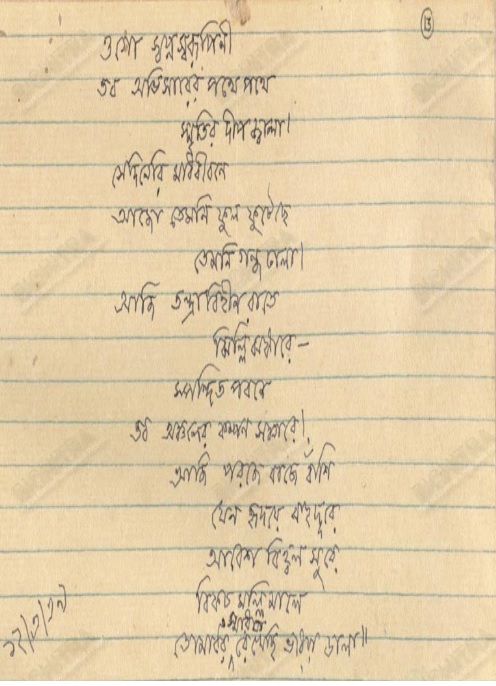 ১৩
ওগো স্বপ্নস্বরূপিনী
তব অভিসারের পথে পথে
স্মৃতির দীপ জ্বালা।
সেদিনেরি মাধবীবনে
আজো তেমনি ফুল ফুটেছে
তেমনি গন্ধ ঢালা।
আজি তন্দ্রাবিহীন রাতে
ঝিল্লিঝঙ্কারে—
স্পন্দিত পবনে
তব অঞ্চলের কম্পন সঞ্চারে।
আজি পরজে বাজে বাঁশি
যেন হৃদয়ে বহুদূরে
আবেশ বিহ্বল সুরে
বিকচ মল্লিমালে
তোমারে স্মরিয়া রেখেছি ভরিয়া ডালা॥